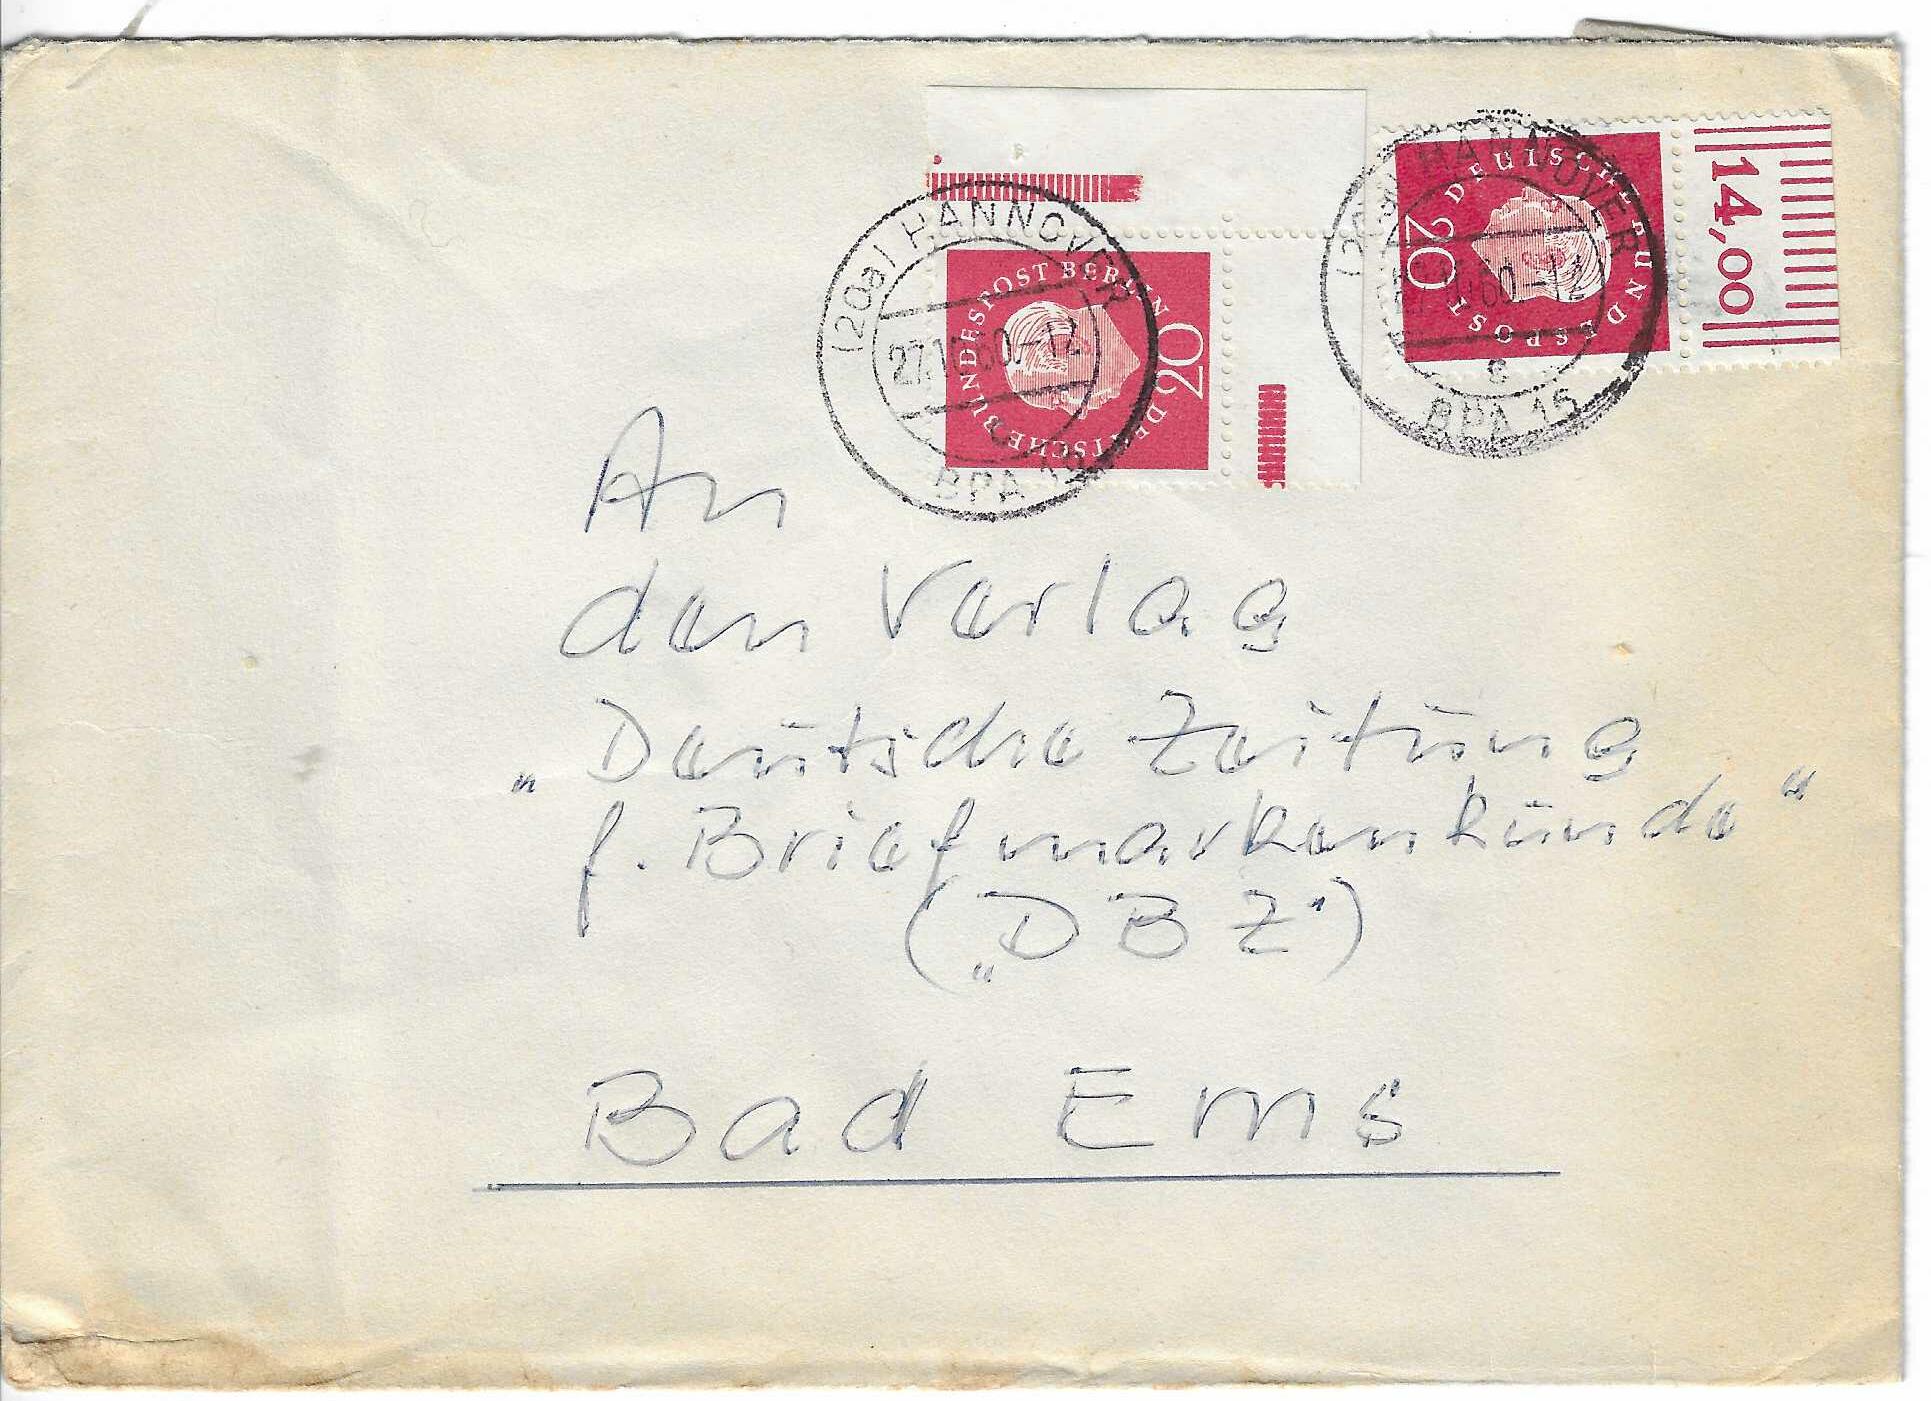 DEUTSCHE BUNDESPOST BERLIN
20
(20a) HANNOVER
27.10.60.-12
BPA 15
DEUTSCHE BUNDESPOST
20
14,00
(20a) HANNOVER
60.-12
s
BPA 15
An
den Verlag
„Deutsche Zeitung
f. Briefmarkenkunde“
(„DBZ“)
Bad Ems